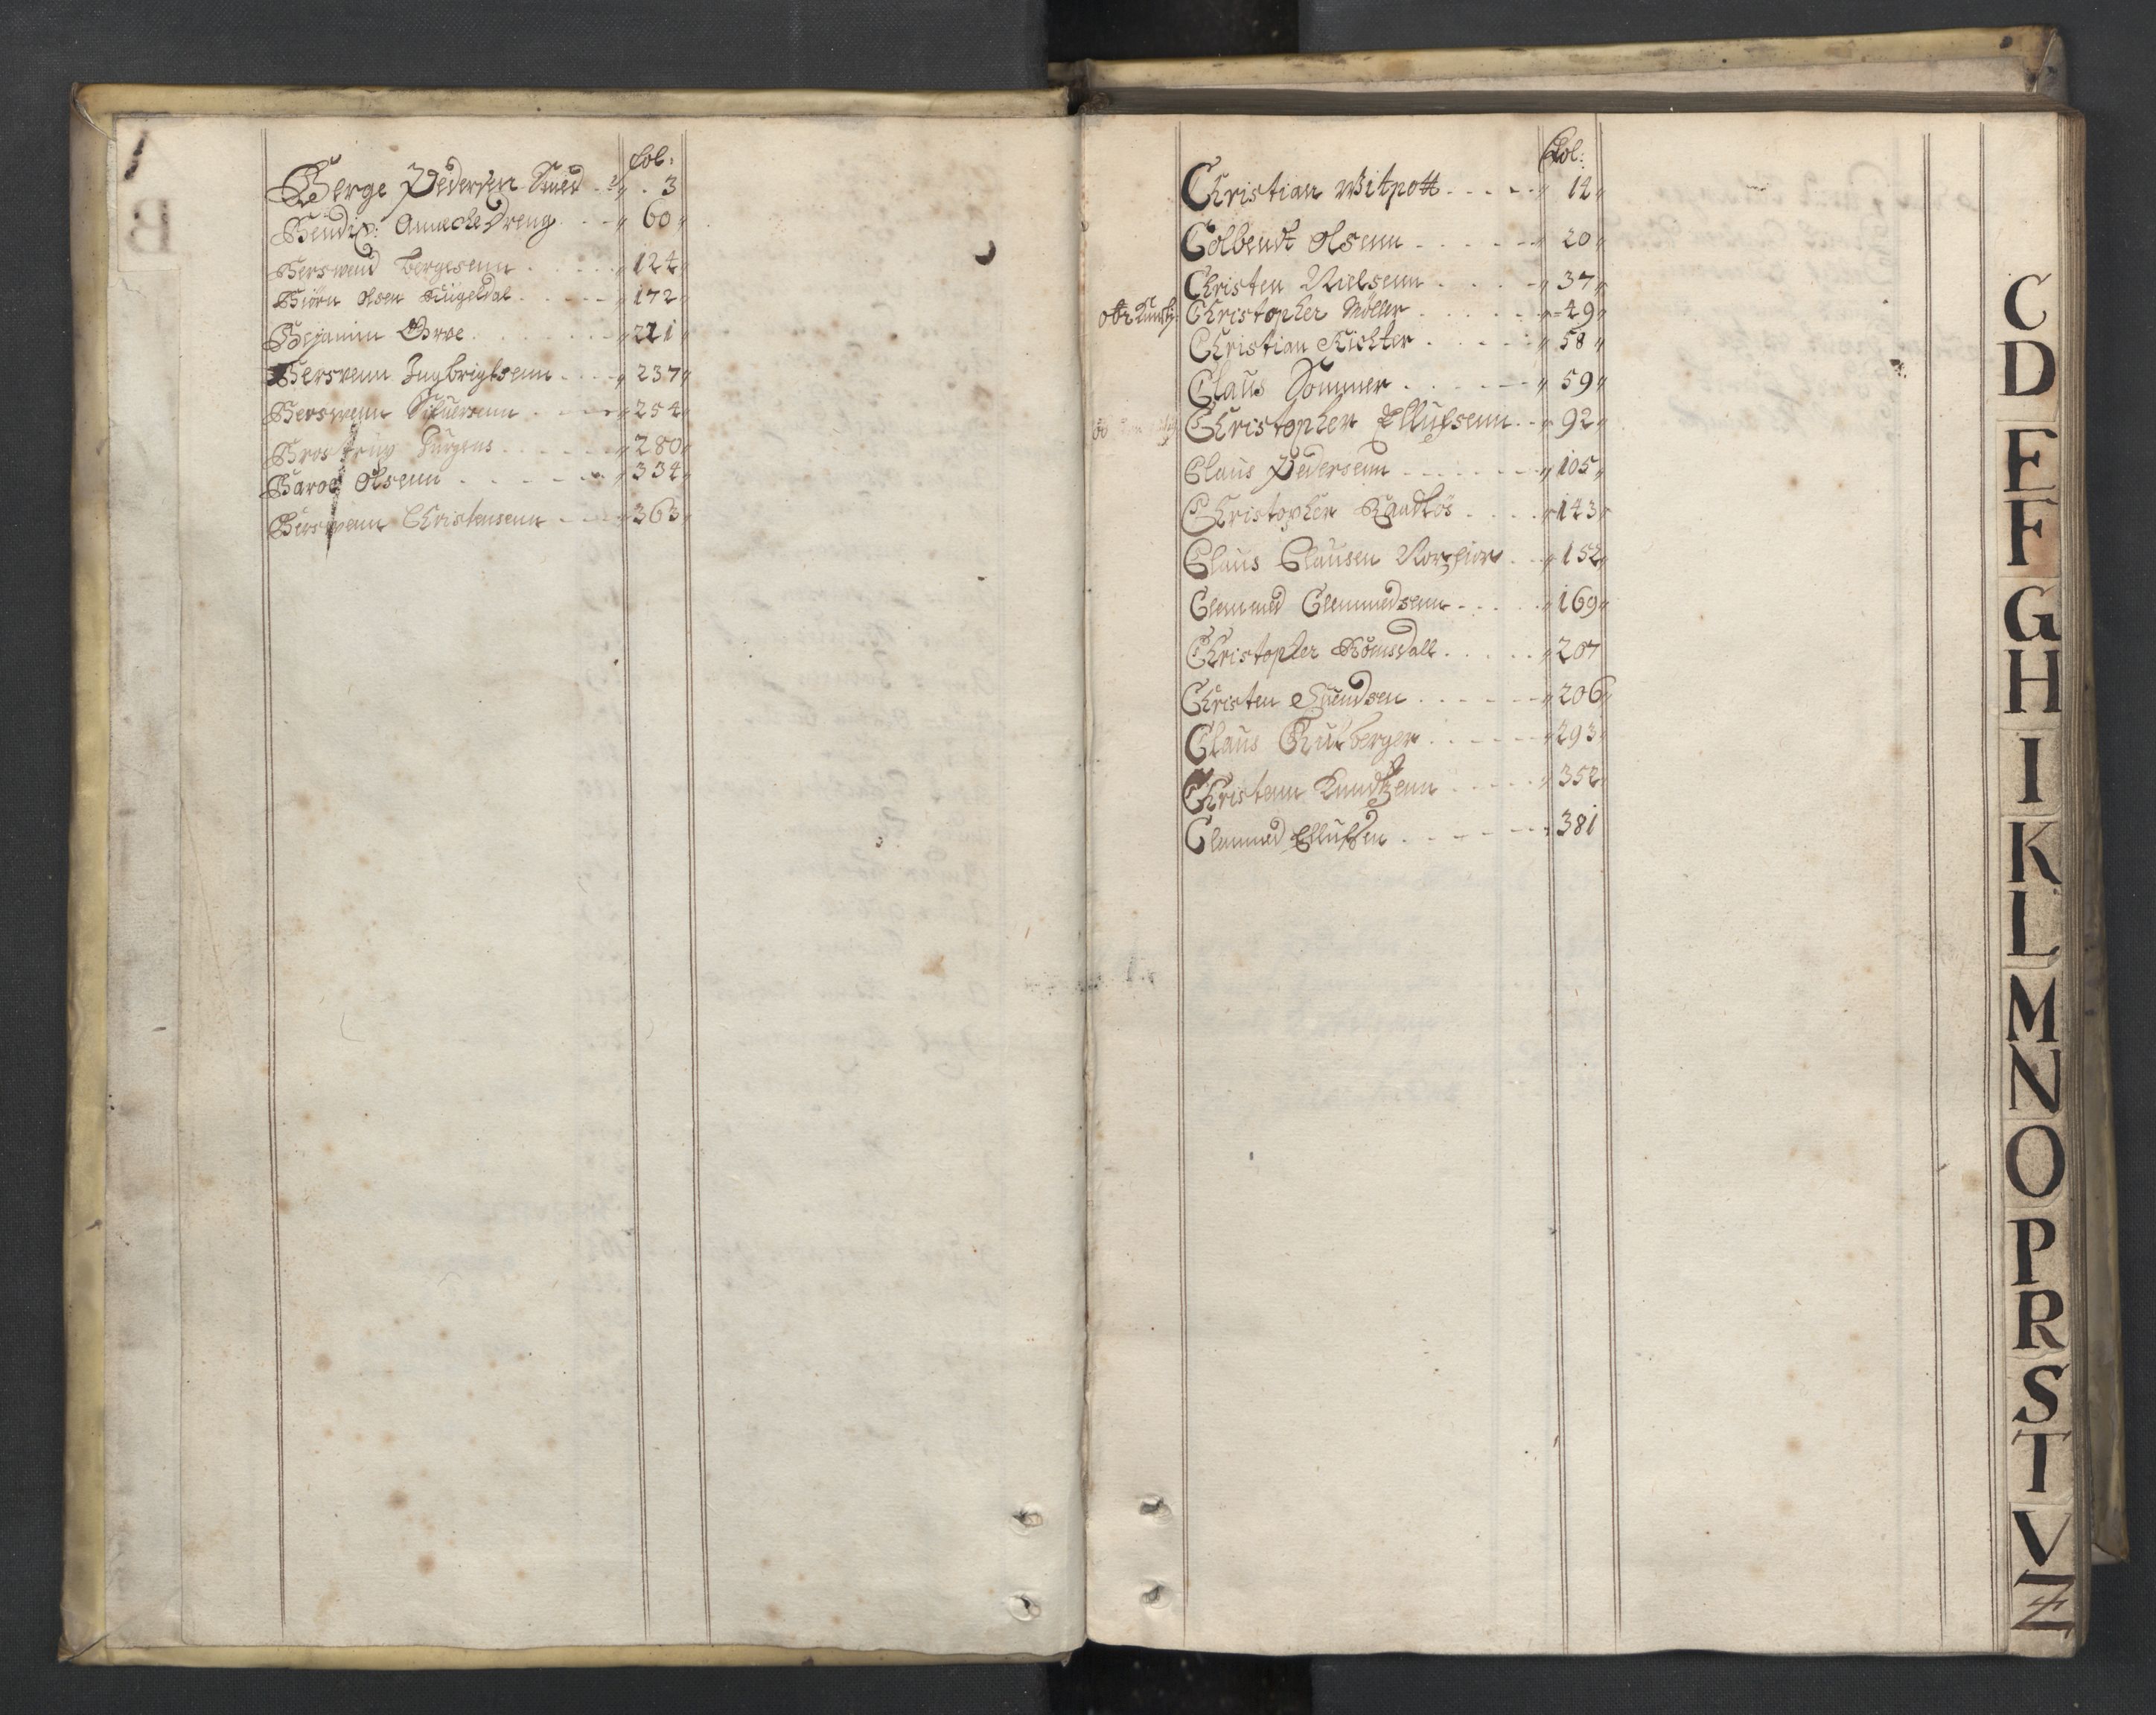 fol:
Berge Pedersen Smed 3
Bendix: Annecke Dreng 60
Berswend Bergesenn 124
Biørn Olsen Kügeldal 172
Bejamin Groe 221
Berswenn Ingbrigtsenn 237
Berswenn Siluersenn 254
Jürgens 280
Baroe Olsenn 334
Berswenn Christensenn 363
B
Fol:
Christian Witpott 14
Colbendt Olsenn 20
Christen Nielsenn 37
Christopher Möller 49
Christian Richter 58
Claus Sommer 59
Christopher Ellufsenn 92
Claus Pedersenn 105
Christopher 143
Claus Clausen 152
Clemmed Clemmedsenn 169
Christopher Romsdall 207
Christen Suendsen 206
Claus 293
Christenn Knudtzenn 352
Clemmed Ellufsen 381
C
D
E
F
G
H
I
K
L
M
N
O
P
R
S
T
V
Z